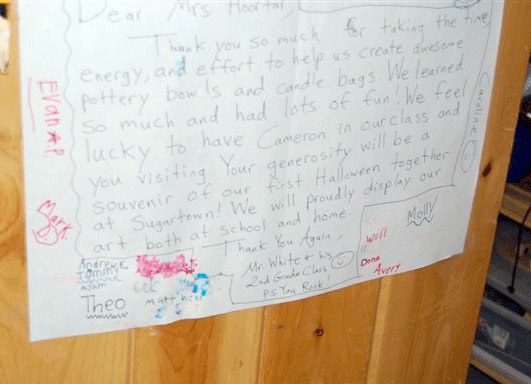 Dear Mrs.
Thank you so much for taking the time,
energy, and effort to help us create awesome
pottery bowls and candle bags. We learned
so much and had lots of fun! We feel
lucky to have Cameron in our class and
you visiting. Your generosity will be a
souvenir of our first Halloween together
at Sugartown! We will proudly display our
art both at school and home.
Thank You Again,
Mr. White + his
2nd Grade Class
P.S You Rock!
Evan A.P.
Mark
Andrew K
Tommy
Adam
Theo
Caroline
Molly
Will
Dana
Avery